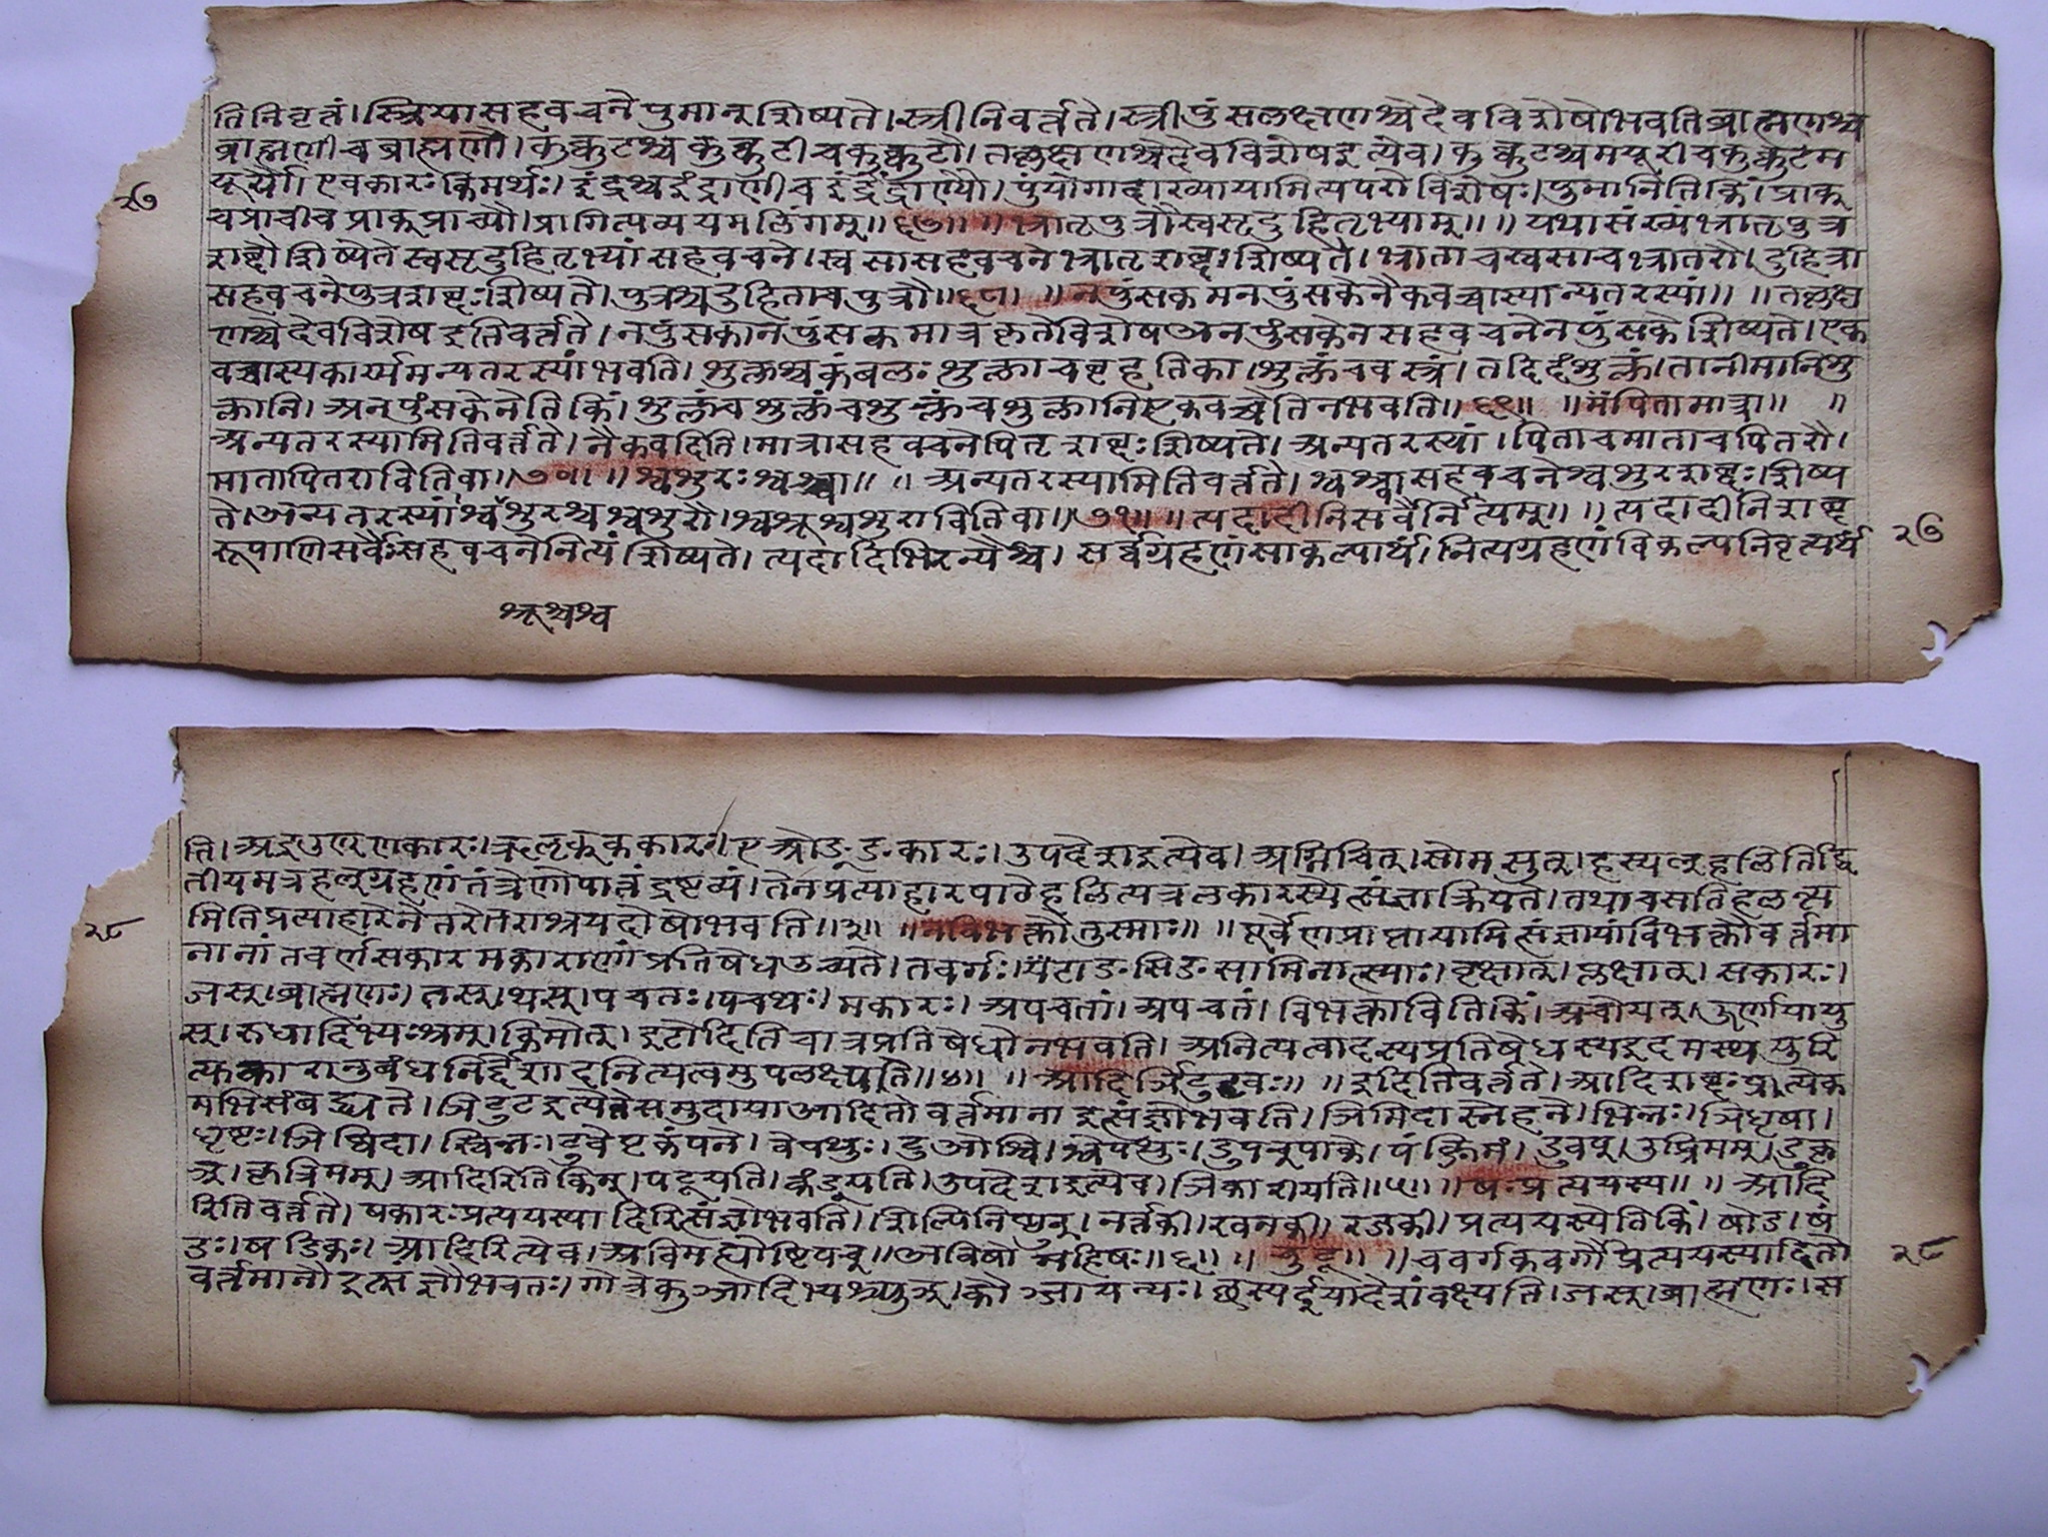 ति निवृत्तं। स्त्रिया सहवचने पुमान् शिष्यते। स्त्री निवर्त्तते। स्त्रीपुंसलक्षणश्चेदेव विशेषो भवति ब्राह्मणश्च
ब्राह्मणी च ब्राह्मणौ। कुक्कुटश्च कुक्कुटी च कुक्कुटौ। तल्लक्षणश्चेदेव विशेष इत्येव। कुक्कुटश्च मयूरी च कुक्कुटम
यूर्यौ। एवकारः किमर्थः। इंद्रश्च इंद्राणी च इंद्रेंद्राण्यौ। पुंयोगादाख्यायामित्यपरो विशेषः। पुमानिति किं। प्राक्
२७
च प्राची च प्राक्प्राच्यौ। प्रागित्यव्ययमलिंगम्॥ ६७॥ ॥ भ्रातृपुत्रौ स्वसृदुहितृभ्याम्॥ ॥ यथासंख्यं भ्रातृपुत्र
शब्दौ शिष्येते स्वसृदुहितृभ्यां सहवचने। स्वसा सहवचने भ्रातृशब्दः शिष्यते। भ्राता च स्वसा च भ्रातरौ। दुहित्रा
सहवचने पुत्रशब्दः शिष्यते। पुत्रश्च दुहिता च पुत्रौ॥ ६८। ॥ नपुंसकमनपुंसकेनैकवच्चास्यान्यतरस्यां॥ ॥ तल्लक्ष
णश्चेदेव विशेष इति वर्त्तते। नपुंसकानपुंसकमात्रकृते विशेष अनपुंसकेन सहवचने नपुंसकं शिष्यते। एक
वच्चास्य कार्य्यमन्यतरस्यां भवति। शुक्लश्च कंबलः शुक्ला च बृहतिका। शुक्लं च वस्त्रं। तदिदं शुक्लं। तानीमानि शु
क्लानि। अनपुंसकेनेति किं। शुक्लं च शुक्लं च शुक्लं च शुक्लानि एकवच्चेति न भवति॥ ६९॥ ॥ मं पिता मात्रा॥ ॥
अन्यतरस्यामिति वर्त्तते। नैकवदिति। मात्रा सहवचने पितृशब्दः शिष्यते। अन्यतरस्यां। पिता च माता च पितरौ।
मातापितराविति वा॥ ७०॥ ॥ श्वशुरः श्वश्र्वा॥ ॥ अन्यतरस्यामिति वर्त्तते। श्वश्र्वा सहवचने श्वशुरशब्दः। शिष्य
ते। अन्यतरस्यां श्वशुरश्च श्वशुरौ। श्वश्रूश्वशुराविति वा॥ ७१॥ ॥ त्यदादीनि सर्वैर्नित्यम्॥ ॥ त्यदादीनि शब्द
रूपाणि सर्वैः सहवचने नित्यं शिष्यते। त्यदादिभिरन्यैश्च। सर्वग्रहणं साकल्यार्थं। नित्यग्रहणं विकल्पनिवृत्यर्थं
२७
श्रूश्चश्व
ति। अइउण् णकारः। ऋलृक् ककारः। एओङ् ङकारः। उपदेश इत्येव। अग्निचित्। सोमसुत्। हस्य ल् हलिति द्वि
तीयमत्र हल्ग्रहणं तंत्रेणोपात्तं द्रष्टव्यं। तेन प्रत्याहारपाठे हलित्यत्र लकारस्येत्संज्ञा क्रियते। तथा च सति हलन्त्य
२८
मिति प्रत्याहारे नेतरेतराश्रयदोषो भवति॥ ३॥ ॥ न विभक्तौ तुस्माः॥ ॥ पूर्वेण प्राप्तायामित्संज्ञायां विभक्तौ वर्त्तमा
नानां तवर्णसकारमकाराणां प्रतिषेध उच्यते। तवर्गः। टाङसिङसामिनात्स्याः। वृक्षात्। प्लक्षात्। सकारः।
जस्। ब्राह्मणाः। तस्। थस्। पचतः। पचथः। मकारः। अपचतां। अपचतं। विभक्ताविति किं। अचो यत्। ऊर्णाया यु
स्। रुधादिभ्यः श्नम्। किमोत्। इटोदिति चात्र प्रतिषेधो न भवति। अनित्यत्वादस्य प्रतिषेधस्य इदमस्थमुरि
त्युकारानुबंधनिर्द्देशादनित्यत्वमुपलक्ष्यते॥ ४॥ ॥ आदिर्ञिटुडवः॥ ॥ इदिति वर्त्तते। आदिशब्दः प्रत्येक
मभिसंबद्ध्यते। ञिटुड इत्येते समुदाया आदितो वर्त्तमाना इत्संज्ञो भवति। ञिमिदा स्नेहने। भिन्नः। ञिधृषा।
धृष्टः। ञिष्विदा। स्विन्नः। टुवेपृ कंपने। वेपथुः। टुओश्वि। श्वयथुः। डुपचष् पाके। पंक्त्रिमं। डुवप्। उप्त्रिमम्। डुकृ
ञ्। कृत्रिमम्। आदिरिति किम्। पटूयति। कंडूयति। उपदेश इत्येव। ञिकारीयति॥ ५॥ ॥ षः प्रत्ययस्य॥ ॥ आदि
रिति वर्त्तते। षकारः प्रत्ययस्यादिरित्संज्ञो भवति। शिल्पिनि ष्वुन्। नर्त्तकी। खनकी। रजकी। प्रत्ययस्येति किं। षोड। षं
डः। षडिकः। आदिरित्येव। अविमह्योष्टिषच्॥ अविषो महिषः॥ ६॥ ॥ चुटू॥ ॥ चवर्गटवर्गौ प्रत्ययस्यादितो
२८
वर्त्तमानौ इत्संज्ञौ भवतः। गोत्रे कुञ्जादिभ्यश्च्फञ्। कौञ्जायन्यः। छस्य ईयादेशं वक्ष्यति। जस्। ब्राह्मणाः। स